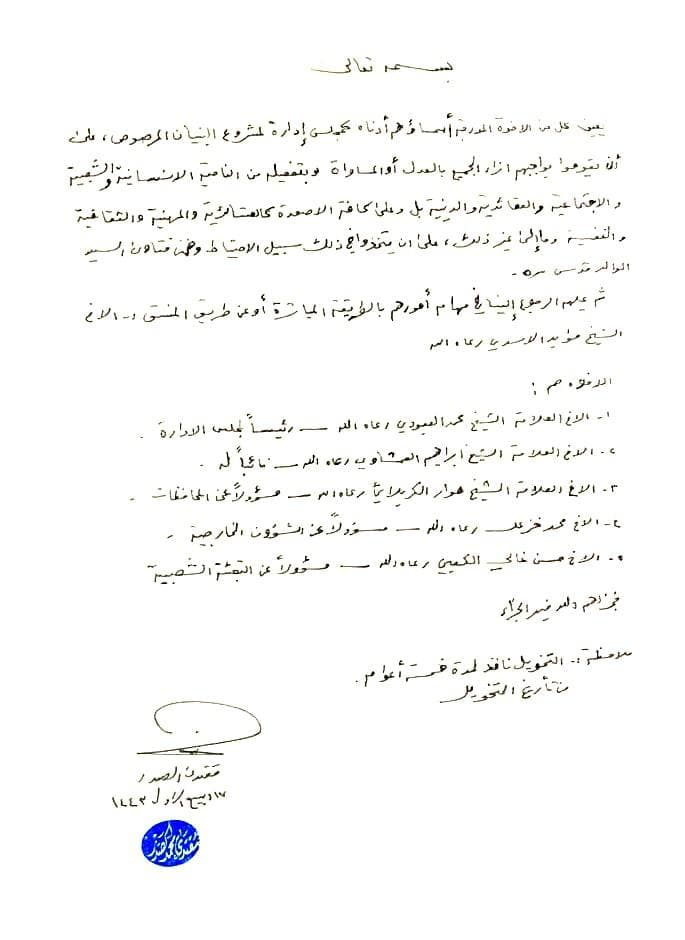 بسمه تعالى
يعين كل من الاخوة المدرجة أسماؤهم أدناه كمجلس إدارة لمشروع البنيان المرصوص، على
أن يقوموا بواجبهم ازاء الجميع بالعدل أو المساواة وبتفعيله من الناحية الانسانية والشعبية
والاجتماعية والعقائدية والدينية بل وعلى كافة الاصعدة كالعشائرية والمهنية والثقافية
والنفسية وما إلى غير ذلك، على ان يتخذوا في ذلك سبيل الاحتياط وضمن فتاوى السيد
الوالد قدس سره.
ثم عليهم الرجوع إلينا في مهام أمورهم بالطريقة المباشرة أو عن طريق المنسق :. الاخ
الشيخ مؤيد الاسدي رعاه الله
الاخوة هم :
١- الاخ العلامة الشيخ محمد العبودي رعاه الله ــ رئيساً لمجلس الادارة .
٢- الاخ العلامة الشيخ ابراهيم العشاوي رعاه الله ــ نائباً له .
٣- الاخ العلامة الشيخ هوار الكربلائي رعاه الله ــ مسؤولاً عن المحافظات .
٤- الاخ محمد خزعل رعاه الله ــ مسؤولاً عن الشؤون الخارجية .
٥- الاخ حسن غالي الكعبي رعاه الله ــ مسؤولاً عن التعبئة الشعبية
فجزاهم الله خير الجزاء
ملاحظة :. التخويل نافذ لمدة خمسة أعوام .
من تأريخ التخويل
مقتدى الصدر
١٧ ربيع الاول ١٤٤٣
مقتدى محمد الصدر